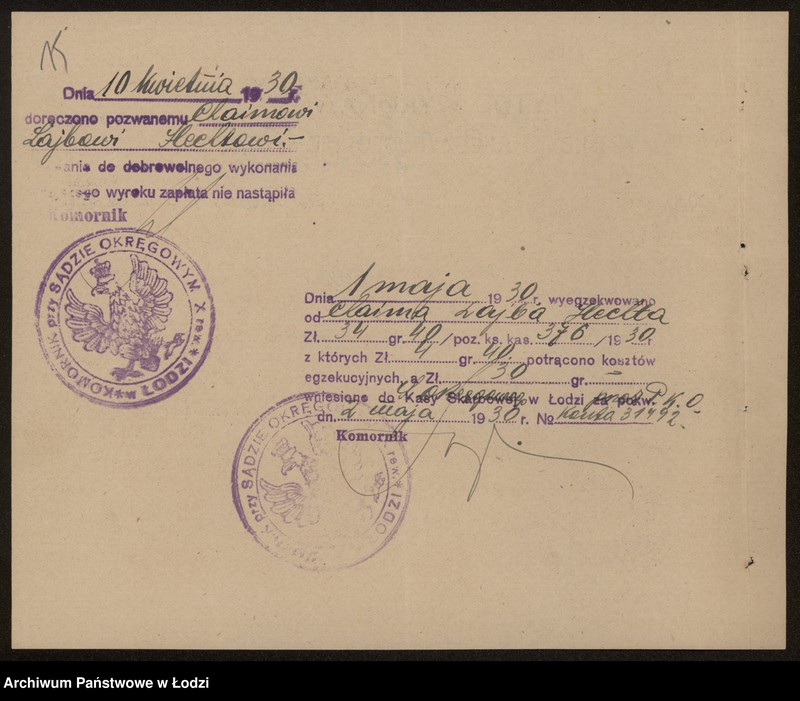 Dnia 10 kwietnia 1930 r.
doręczono pozwanemu Chaimowi
Lajbowi Hechtowi.-
-ania do dobrowolnego wykonania
-cego wyroku zapłata nie nastąpiła
Komornik
KOMORNIK przy SĄDZIE OKRĘGOWYM X rew. w ŁODZI
Dnia 1 maja 1930 r. wyegzekwowano
od Chaima Lajba Hechta
Zł. 34 gr. 40 /poz. ks. kas. 376/1930 r.
z których Zł. 4 gr. 40 potrącono kosztów
egzekucyjnych, a Zł. 30 gr. -
wniesione do Kasy Skarbowej w Łodzi za pokw. P.K.O
dn. 2 maja 1930 r. № konta 31492.-
Komornik
przy SĄDZIE OKRĘG rew. ODZI
Archiwum Państwowe w Łodzi